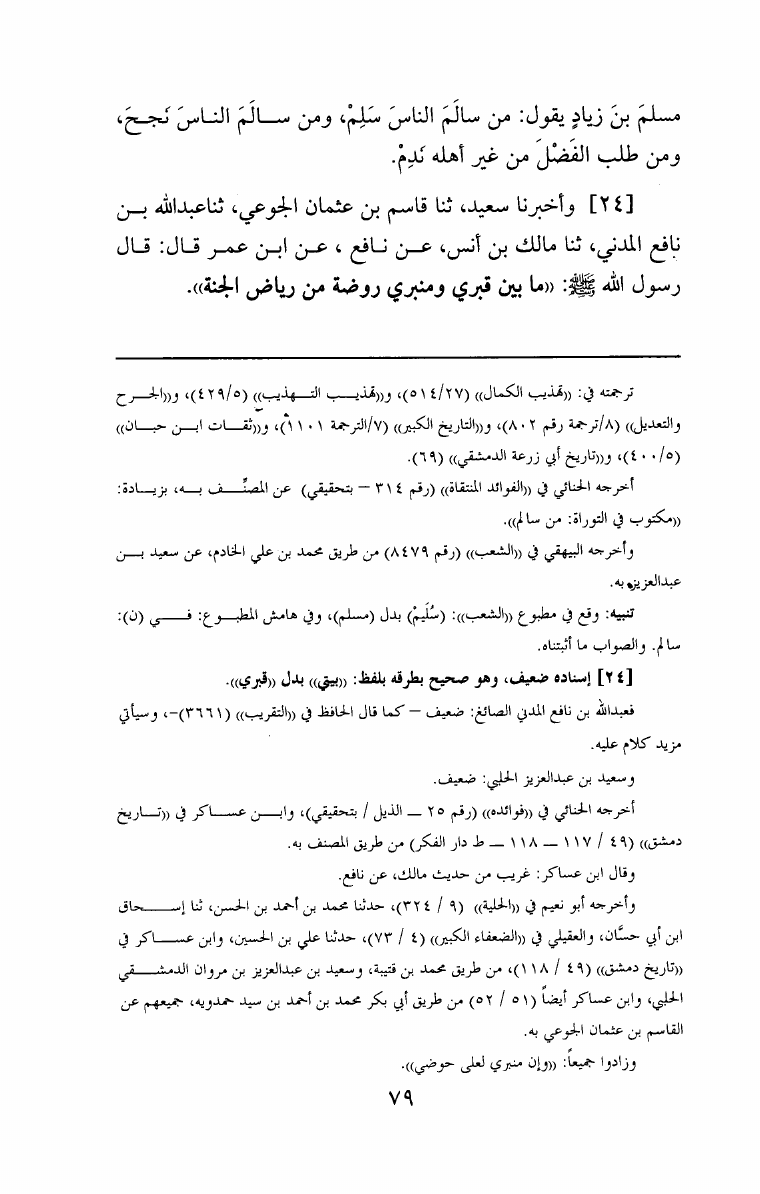 مسلمَ بنَ زيادٍ يقول: من سالَمَ الناسَ سَلِمْ، ومن سالَمَ الناسَ نَجحَ،
ومن طلب الفَضْلَ من غير أهله نَدِمْ.
[٢٤] وأخبرنا سعيد، ثنا قاسم بن عثمان الجوعي، ثناعبدالله بن
نافع المدني، ثنا مالك بن أنس، عن نافع ، عن ابن عمر قال: قال
رسول الله ﷺ: ((ما بين قبري ومنبري روضة من رياض الجنة)).
ترجمته في: ((تهذيب الكمال)) (٥١٤/٢٧)، و((تهذيب التهذيب)) (٤٢٩/٥)، و((الجرح
والتعديل)) (٨/ترجمة رقم ٨٠٢)، و((التاريخ الكبير)) (٧/الترجمة ١١٠١)، و((ثقات ابن حبان))
(٤٠٠/٥)، و((تاريخ أبي زرعة الدمشقي)) (٦٩).
أخرجه الحنائي في ((الفوائد المنتقاة)) (رقم ٣١٤ – بتحقيقي) عن المصنِّف به، بزيادة:
((مكتوب في التوراة: من سالم)).
وأخرجه البيهقي في ((الشعب)) (رقم ٨٤٧٩) من طريق محمد بن علي الخادم، عن سعيد بن
عبدالعزيز به.
تنبيه: وقع في مطبوع ((الشعب)): (سُلَيمْ) بدل (مسلم)، وفي هامش المطبوع: في (ن):
سالم. والصواب ما أثبتناه.
[٢٤] إسناده ضعيف، وهو صحيح بطرقه بلفظ: ((بيتي)) بدل ((قبري)).
فعبدالله بن نافع المدني الصائغ: ضعيف – كما قال الحافظ في ((التقريب)) (٣٦٦١)-، وسيأتي
مزيد كلام عليه.
وسعيد بن عبدالعزيز الحلبي: ضعيف.
أخرجه الحنائي في ((فوائده)) (رقم ٢٥ – الذيل / بتحقيقي)، وابن عساكر في ((تاريخ
دمشق)) (٤٩ / ١١٧ – ١١٨ – ط دار الفكر) من طريق المصنف به.
وقال ابن عساكر: غريب من حديث مالك، عن نافع.
وأخرجه أبو نعيم في ((الحلية)) (٩ / ٣٢٤)، حدثنا محمد بن أحمد بن الحسن، ثنا إسحاق
ابن أبي حسَّان، والعقيلي في ((الضعفاء الكبير)) (٤ / ٧٣)، حدثنا علي بن الحسين، وابن عساكر في
((تاريخ دمشق)) (٤٩ / ١١٨)، من طريق محمد بن قتيبة، وسعيد بن عبدالعزيز بن مروان الدمشقي
الحلبي، وابن عساكر أيضاً (٥١ / ٥٢) من طريق أبي بكر محمد بن أحمد بن سيد حمدويه، جميعهم عن
القاسم بن عثمان الجوعي به.
وزادوا جميعاً: ((وإن منبري لعلى حوضي)).
٧٩